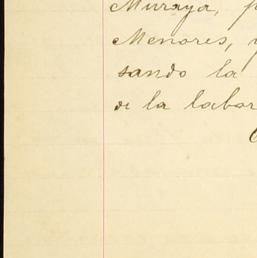 Muraya, p
Menores, y
sando la
de la labor